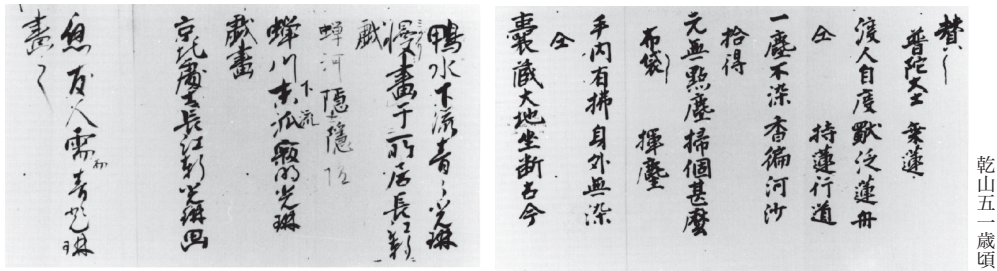 乾山五一歳頃
賛
普陀大士 乗蓮
渡人自度獣泛蓮舟
仝 持蓮行道
一塵不染香徧河沙
拾得
元無點塵掃個甚麼
布袋 揮麈
手内有拂身外無染
仝
嚢蔵大地坐断古今
鴨水下流青々光琳
漫畫于 居長江軒
戯
蝉河 隠隠
下流
蝉川 寂明光琳
戯畫
京兆處士長江軒光琳画
應友人需 青々光琳
畫之